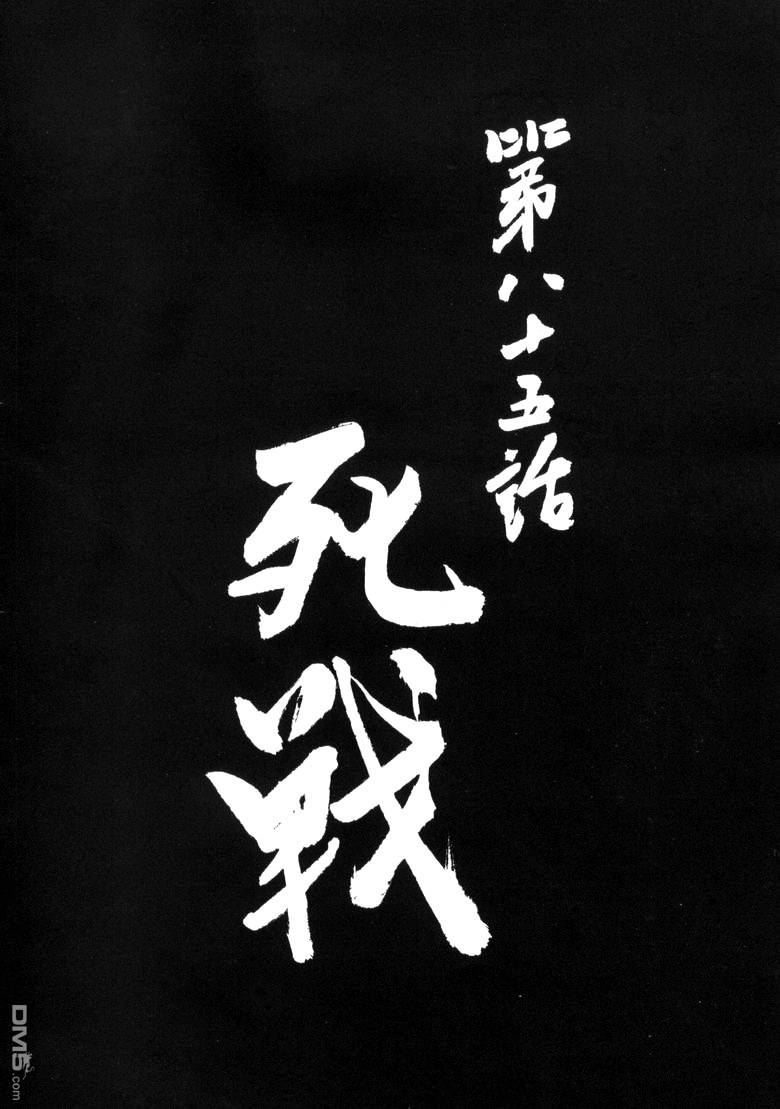 第八十五話
死戦
DM5.com